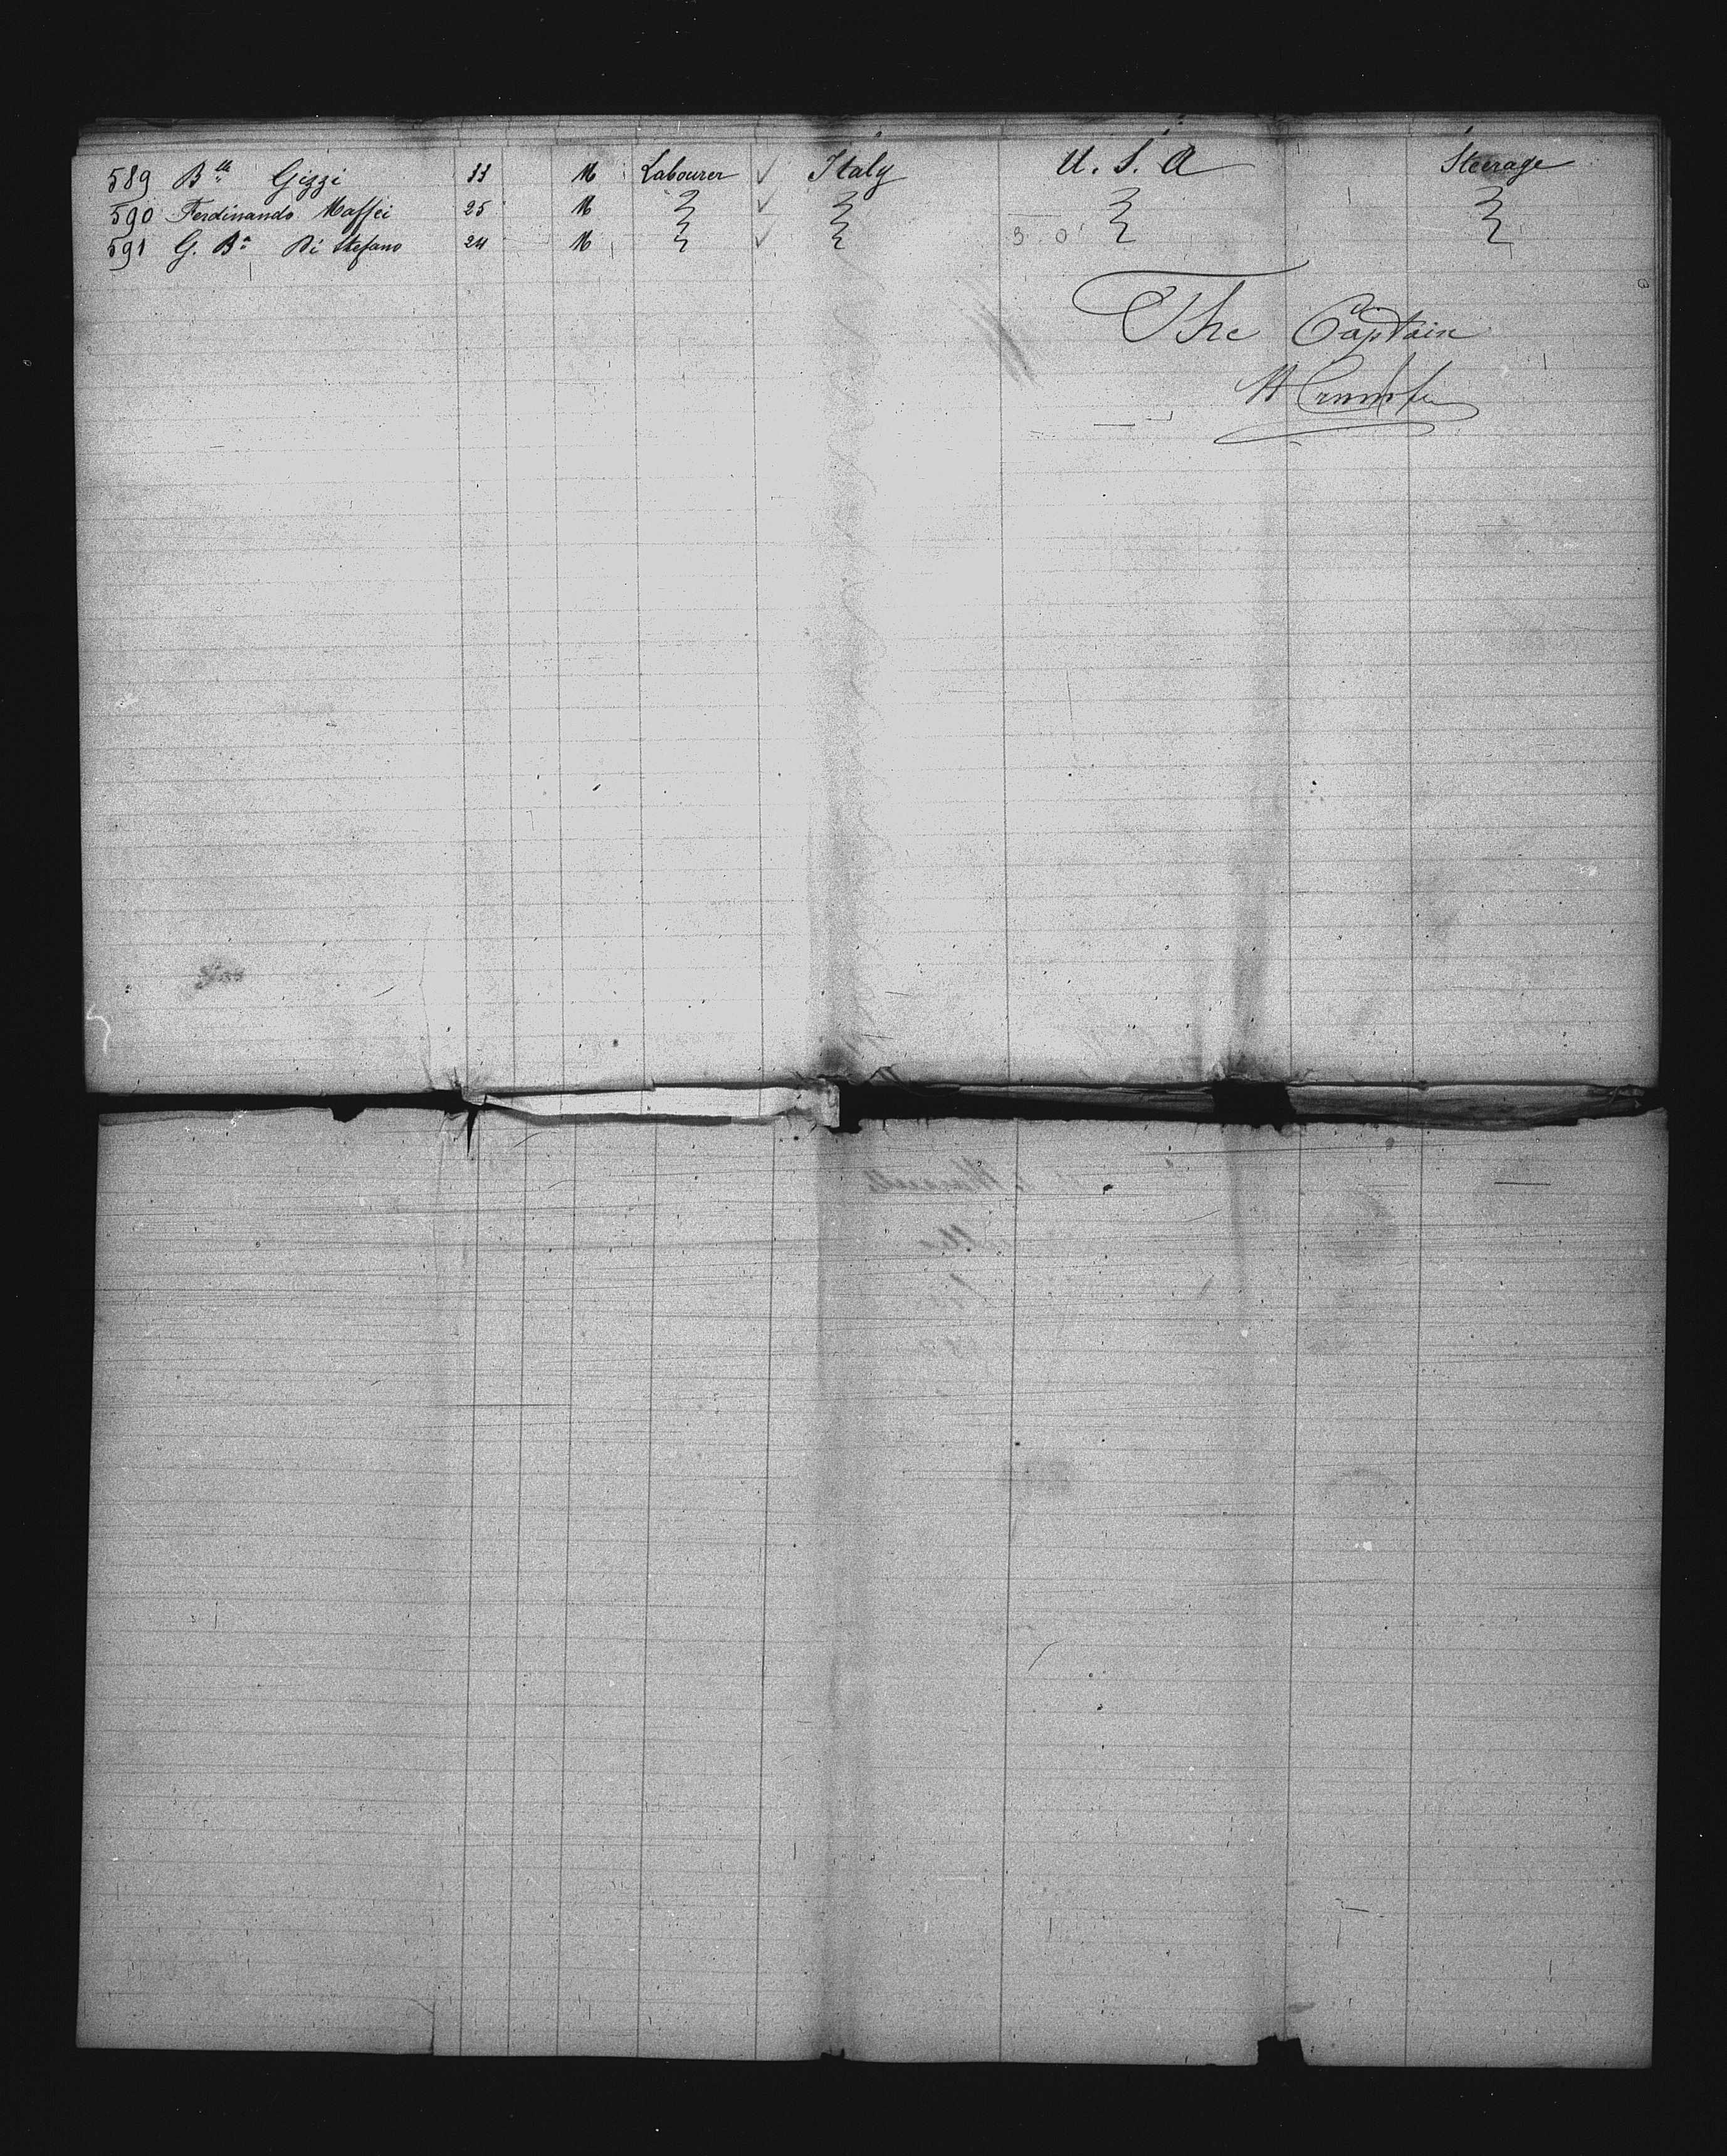 589 Bta Gizzi 33 M Labourer ✓ Italy U. S. A Steerage
590 Ferdinando Maffei 25 M ✓
591 G. Ba Di Stefano 24 M ✓ 3 0
The Captain